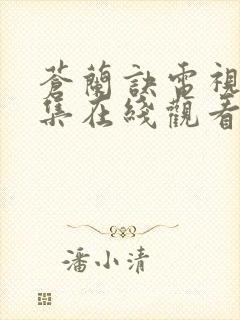 蒼蘭訣電視
集在綫觀看
潘小清